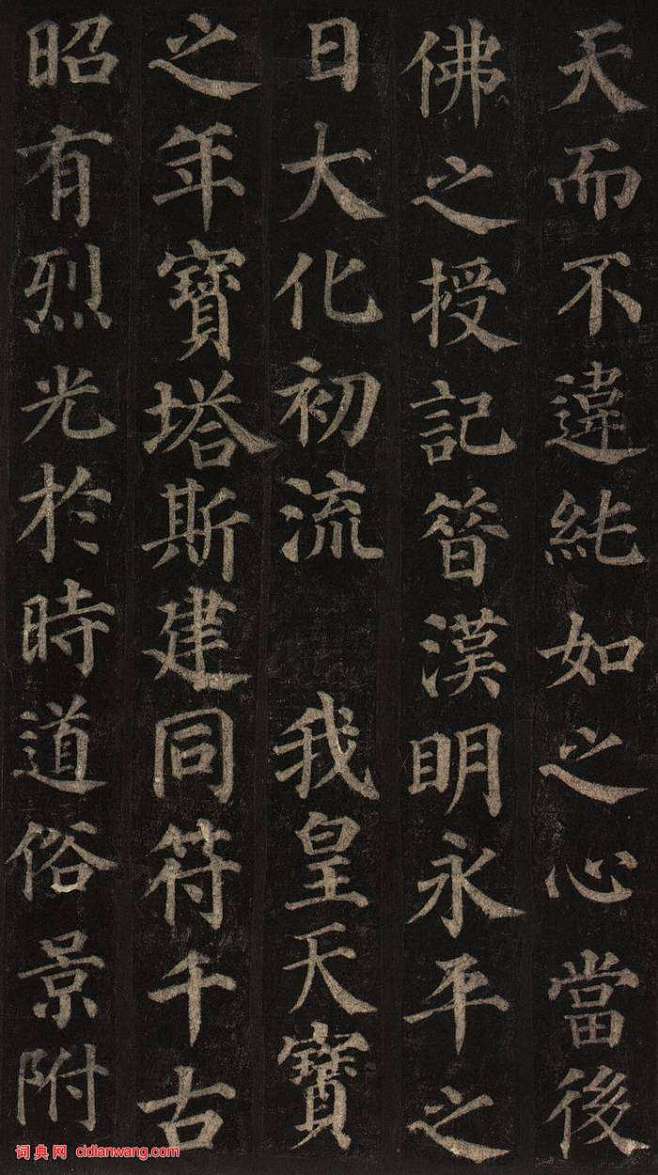 天而不違純如之心當後
佛之授記昔漢明永平之
日大化初流 我皇天寶
之年寶塔斯建同符千古
昭有烈光於時道俗景附
词典网 cidianwang.com